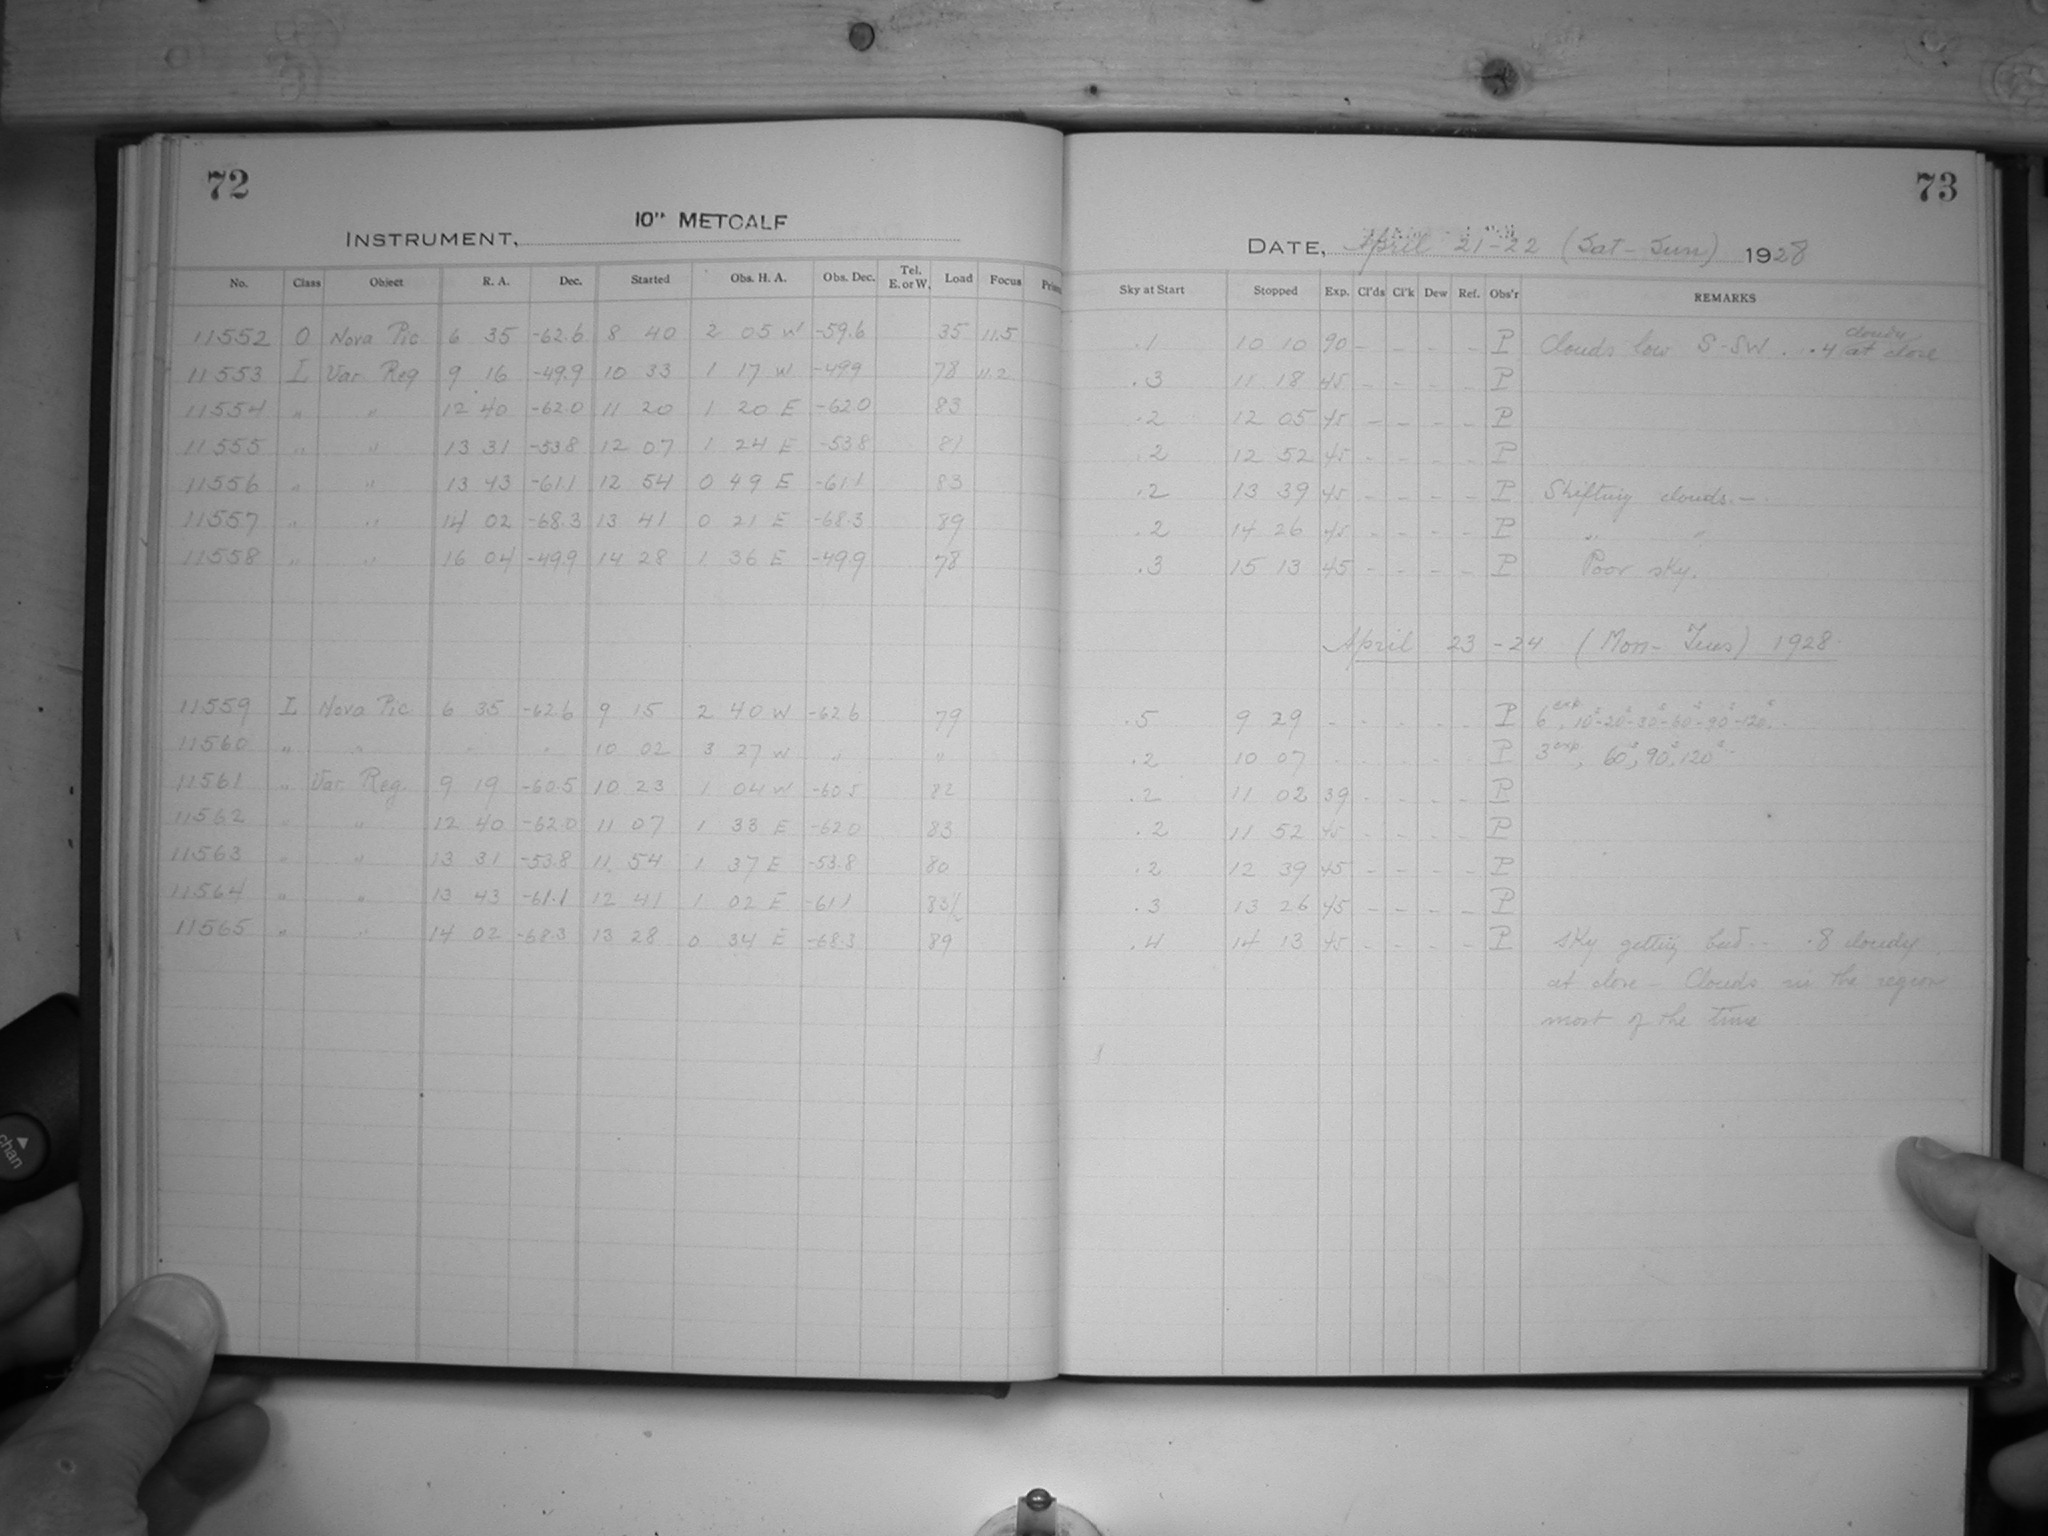 72
INSTRUMENT, 10" METCALF
No. Class Object R. A. Dec. Started Obs. H. A. Obs. Dec. Tel. E. or W. Load Focus
11552 O Nova Pic 6 35 -62.6 8 40 2 05 W -59.6 35 11.5
11553 I Var Reg 9 16 -49.9 10 33 1 17 W -49.9 78 11.2
11554 " " 12 40 -62.0 11 20 1 20 E -62.0 83
11555 " " 13 31 -53.8 12 07 1 24 E -53.8 81
11556 " " 13 43 -61.1 12 54 0 49 E -61.1 83
11557 " " 14 02 -68.3 13 41 0 21 E -68.3 89
11558 " " 16 04 -49.9 14 28 1 36 E -49.9 78
11559 I Nova Pic 6 35 -62.6 9 15 2 40 W -62.6 79
11560 " " " " 10 02 3 27 W " "
11561 " Var Reg. 9 19 -60.5 10 23 1 04 W -60.5 82
11562 " " 12 40 -62.0 11 07 1 33 E -62.0 83
11563 " " 13 31 -53.8 11 54 1 37 E -53.8 80
11564 " " 13 43 -61.1 12 41 1 02 E -61.1
11565 " " 14 02 -68.3 13 28 0 34 E -68.3 89
73
DATE, April 21-22 (Sat-Sun) 1928
Sky at Start Stopped Exp. Cl'ds Cl'k Dew Ref. Obs'r REMARKS
.1 10 10 90 - - - - P Clouds low S-SW. .4 cloudy at close
.3 11 18 45 - - - - P
.2 12 05 45 - - - - P
.2 12 52 45 - - - - P
.2 13 39 45 - - - - P Shifting clouds.-
.2 14 26 45 - - - - P " "
.3 15 13 45 - - - - P Poor sky.
April 23-24 (Mon-Tues) 1928
.5 9 29 - - - - P 6 exp. 10s-20s-30s-60s-90s-120s.
.2 10 07 - - - - P 3 exp, 60s, 90s, 120s
.2 11 02 39 - - - - P
.2 11 52 45 - - - - P
.2 12 39 45 - - - - P
.3 13 26 45 - - - - P
.4 14 13 45 - - - - P Sky getting bad - .8 cloudy
at close - Clouds in the region
most of the time
chan